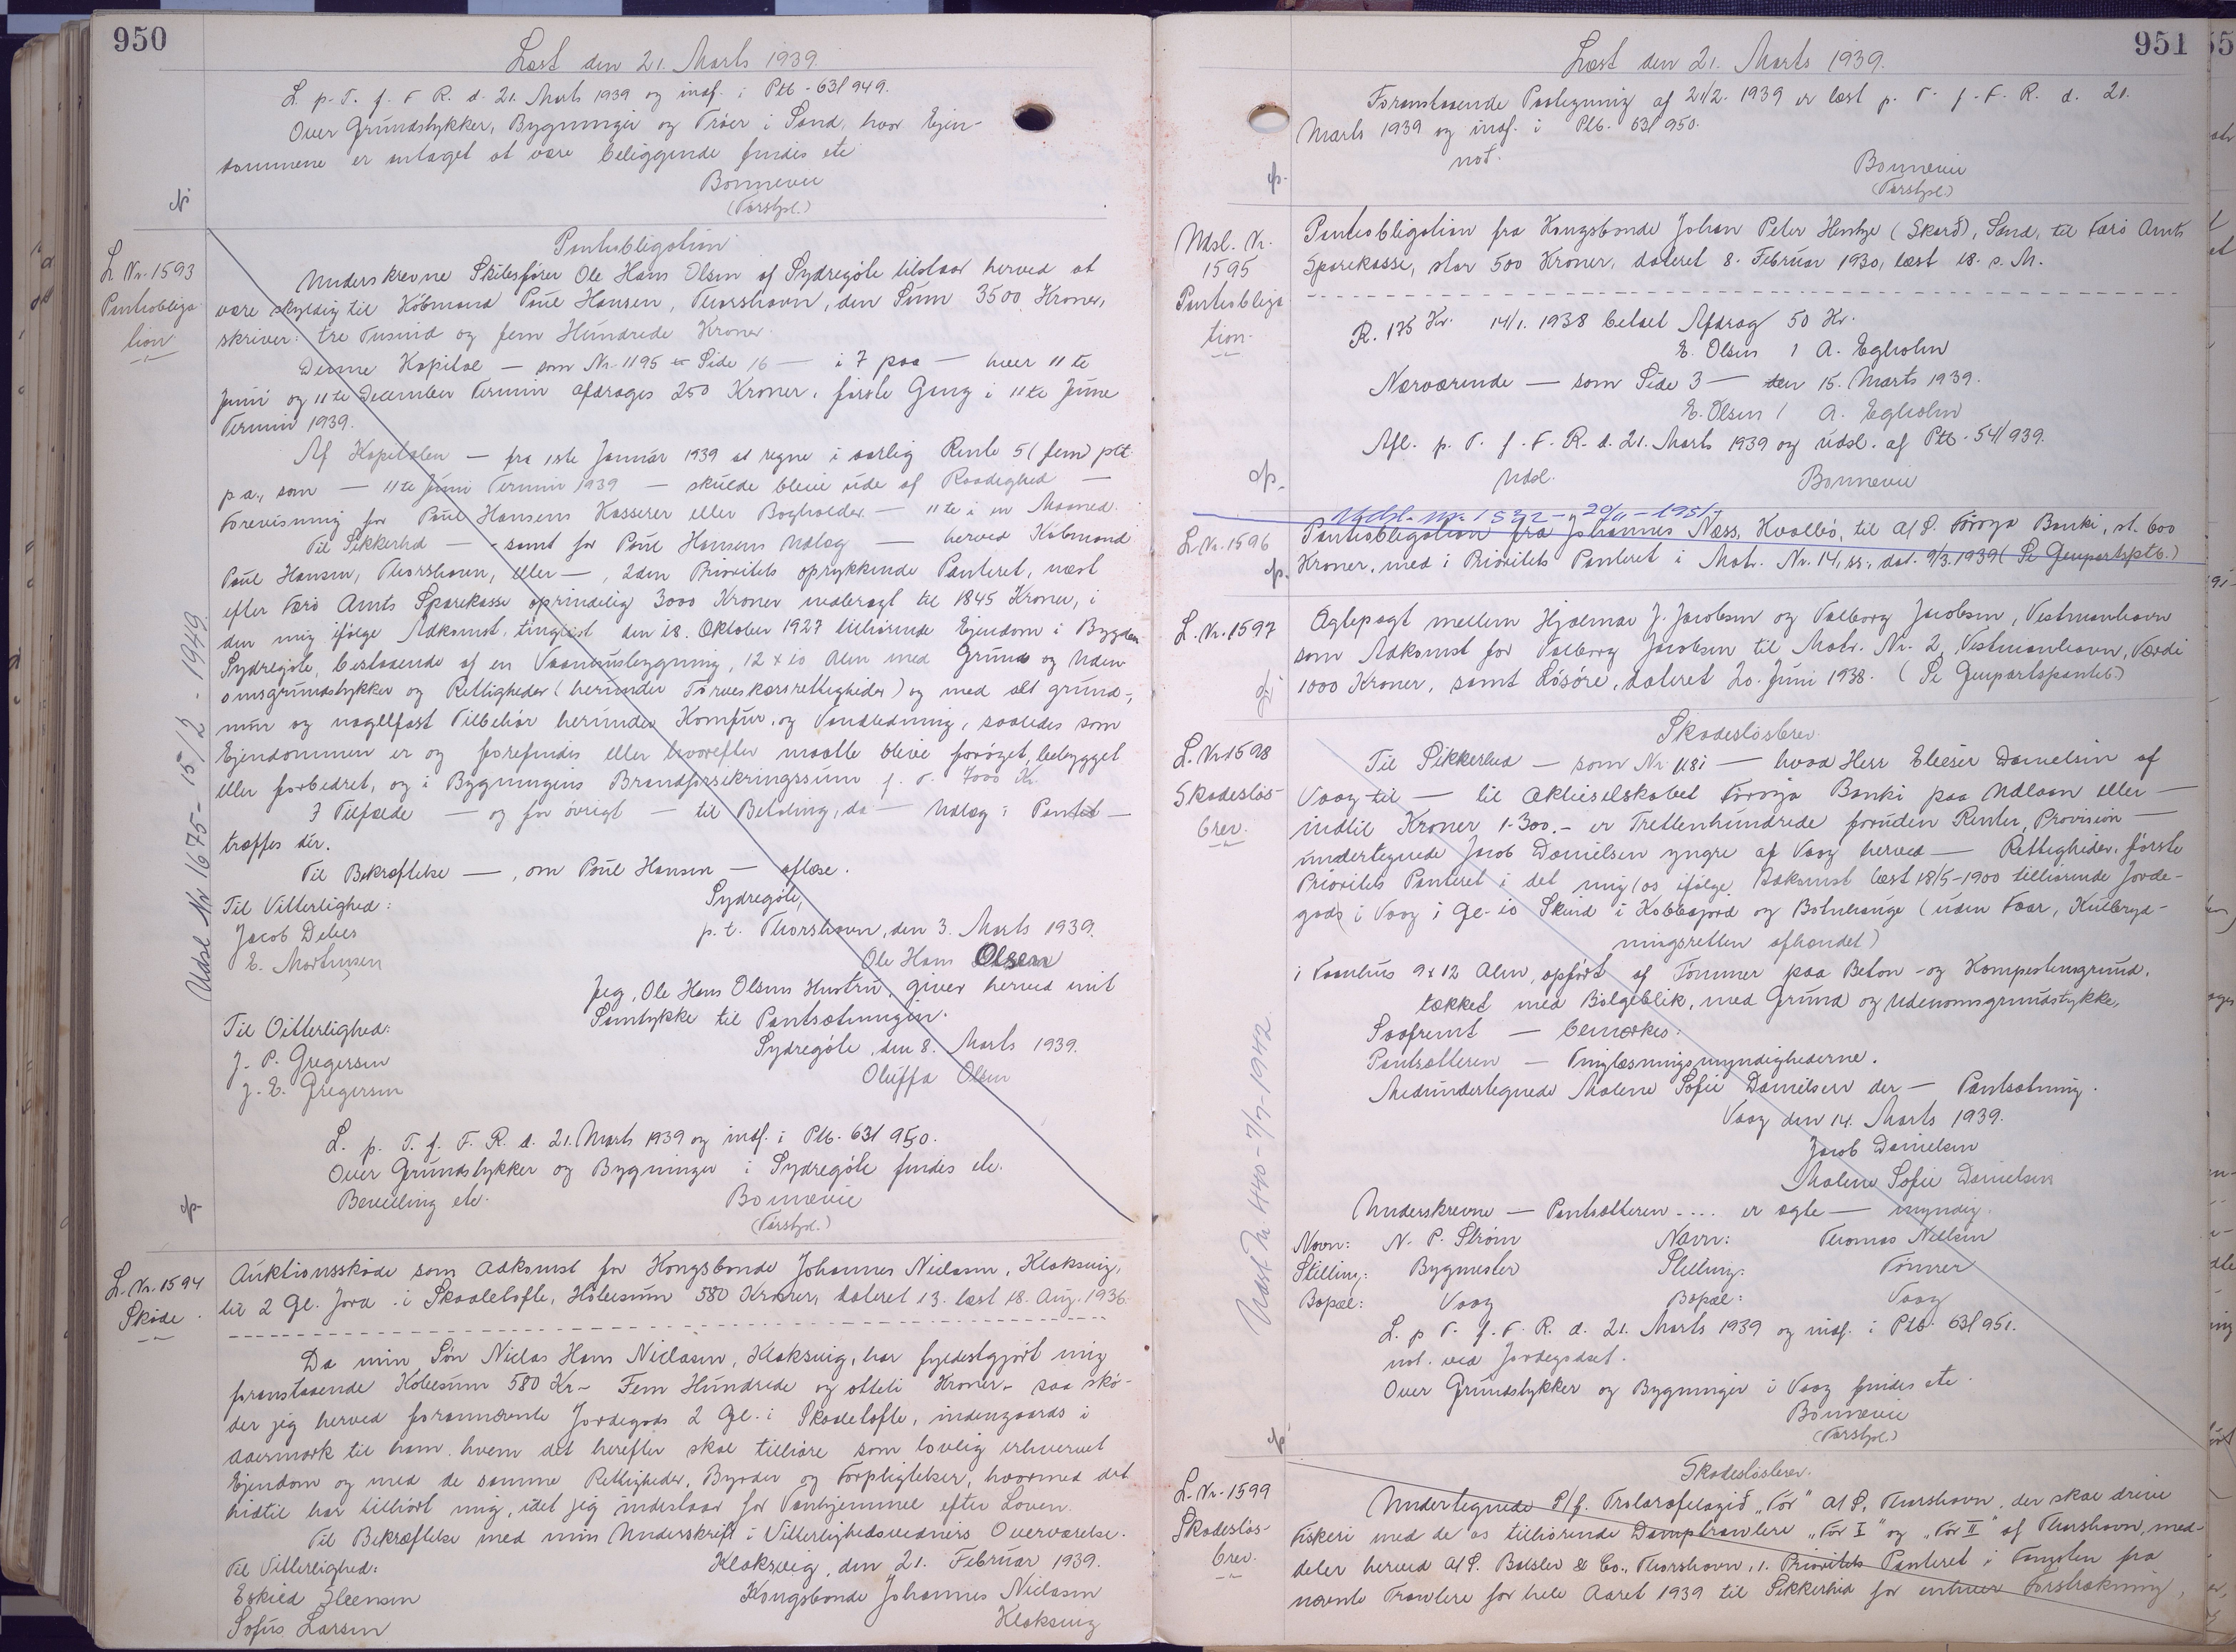 950
Læst den 21. Marts 1939.
L. p. T. f. F. R. d. 21. Marts 1939 og indf. i Ptb. 63/949.
Over Grundstykker, Bygninger og Tröer i Sand, hvor Ejen-
dommene er antaget at være beliggende findes etc
Bonnevie
(Forstpl.)
L. Nr. 1593
Pantobliga
tion
Pantobligation
Underskrevne Skibsfører Ole Hans Olsen af Sydregöte tilstaar herved at
være skyldig til Købmand Poul Hansen, Thorshavn, den Sum 3500 Kroner,
skriver: tre Tusind og fem Hundrede Kroner.
Denne Kapital — som Nr. 1195 Side 16 — i 7 paa — hver 11te
Juni og 11te December Termin afdrages 250 Kroner, første Gang i 11te June
Termin 1939.
Af Kapitalen — fra 1ste Januar 1939 at regne i aarlig Rente 5 (fem) pCt.
p a., som — 11te Juni Termin 1939 — skulde blive ude af Raadighed —
Forevisning for Poul Hansens Kasserer eller Bogholder — 11te i en Maaned.
Til Sikkerhed — - samt for Poul Hansens Udlæg — herved Købmand
Poul Hansen, Thorshavn, eller —, 2den Prioritets oprykkende Panteret, næst
efter Færö Amts Sparekasse oprindelig 3000 Kroner nedbragt til 1845 Kroner, i
den mig ifølge Adkomst, tinglæst den 18. Oktober 1927 tilhørende Ejendom i Bygden
Sydregöte, bestaaende af en Vaaningsbygning, 12 x 10 Alen med Grund og Uden
omsgrundstykker og Rettigheder (herunder Törveskærsrettigheder) og med alt grund-,
mur og nagelfast Tilbehör herunder Komfur, og Vandledning, saaledes som
Ejendommen er og forefindes eller hvorefter maatte blive forøget, bebygget
eller forbedret, og i Bygningens Brandforsikringssum f. T. 7000 Kr.
I Tilfælde — og for övrigt — til Betaling, da — Udlæg i Pantet —
træffes der.
Til Bekræftelse —, om Poul Hansen — aflæse.
Til Vitterlighed:
Sydregöte,
Jacob Debes
p. t. Thorshavn, den 3. Marts 1939.
E. Mortensen
Ole Hans Olsen
Jeg, Ole Hans Olsens Hustru, giver herved mit
Samtykke til Pantsætningen.
Til Vitterlighed:
Sydregöte, den 8. Marts 1939.
J. P. Gregersen
Oluffa Olsen
J. E. Gregersen
L. p. T. f. F. R. d. 21. Marts 1939 og indf. i Ptb. 63/950.
Over Grundstykker og Bygninger i Sydregöte findes etc.
Bevilling etc.
Bonnevie
(Forstpl.)
Udsl. Nr 1675 - 15/12 - 1949.
L. Nr. 1594
Skøde
Auktionsskøde som Adkomst for Kongsbonde Johannes Niclasen, Klaksvig,
til 2 Gl. Jord i Skaaletofte, Købesum 580 Kroner, dateret 13. læst 18. Aug. 1936.
Da min Søn Niclas Hans Niclasen, Klaksvig, har fyldestgjort mig
foranstaaende Købesum 580 Kr.- Fem Hundrede og otteti Kroner.- saa skø-
der jeg herved forannævnte Jordegods 2 Gl. i Skaaletofte, indengaards i
Avermark til ham, hvem det herefter skal tilhøre som lovlig erhvervet
Ejendom og med de samme Rettigheder, Byrder og Forpligtelser, hvormed det
hidtil har tilhørt mig, idet jeg indestaar for Vanhjemmel efter Loven.
Til Bekræftelse med min Underskrift i Vitterlighedsvidners Overværelse.
Til Vitterlighed:
Klaksvig, den 21. Februar 1939.
Eskild Steensen
Kongsbonde Johannes Niclasen
Sofus Larsen
Klaksvig
951
Læst den 21. Marts 1939.
Foranstaaende Paategning af 21/2. 1939 er læst p. T. f. F. R. d. 21.
Marts 1939 og indf. i Ptb. 63/950.
not.
Bonnevie
(Forstpl.)
Udsl. Nr.
1595
Pantobliga
tion.
Pantobligation fra Kongsbonde Johan Peter Hentze (Skarð), Sand, til Færö Amts
Sparekasse, stor 500 Kroner, dateret 8. Februar 1930, læst 18. s. M.
R. 175 Kr. 14/1. 1938 betalt Afdrag 50 Kr.
E. Olsen / A. Egholm
Nærværende — som Side 3 — den 15. Marts 1939.
E. Olsen / A. Egholm
Afl. p. T. f. F. R. d. 21. Marts 1939 og udsl. af Ptb. 54/939.
Udsl.
Bonnevie
Udsl. nr. 1532 - 20/11 - 1951
L. Nr. 1596
Pantobligation fra Johannes Næss, Hvalbö, til A/S. Föroya Banki, st. 600
Kroner, med 1 Prioritets Panteret i Matr. Nr. 14, ss., dat. 9/3. 1939 (Se Genpartsptb.)
L. Nr. 1597
Ægtepagt mellem Hjalmar J. Jacobsen og Valborg Jacobsen, Vestmanhavn
som Adkomst for Valborg Jacobsen til Matr. Nr. 2, Vestmanhavn, Værdi
1000 Kroner, samt Løsøre, dateret 20. Juni 1938. (Se Genpartspantb.)
L. Nr. 1598
Skadesløs-
brev.
Skadesløsbrev.
Til Sikkerhed — som Nr. 1181 — hvad Herr Elieser Danielsen af
Vaag til — til Aktieselskabet Föroya Banki paa Udlaan eller —
indtil Kroner 1.300.- er Trettenhundrede foruden Renter, Provision —
undertegnede Jacob Danielsen yngre af Vaag herved — Rettigheder, første
Prioritets Panteret i det mig/os ifølge Adkomst læst 18/5-1900 tilhørende Jorde-
gods i Vaag i Gl. 10 Skind i Kobbafjord og Botnhauge (uden Faar, Kulbryd-
ningsretten afhændet)
i Vaanhus 9 x 12 Alen, opført af Tömmer paa Beton- og Kampestensgrund,
tækket med Bølgeblik, med Grund og Udenomsgrundstykke,
Saafremt — bemærkes:
Pantsætteren — Tinglæsningsmyndighederne.
Medundertegnede Malene Sofie Danielsen der — Pantsætning.
Vaag den 14. Marts 1939.
Jacob Danielsen
Malene Sofie Danielsen
Underskrevne — Pantsætteren .... er ægte — myndig.
Navn: N. P. Strøm Navn: Thomas Nielsen
Stilling: Bygmester Stilling: Tömrer
Bopæl: Vaag Bopæl: Vaag
L. p T. f. F. R. d. 21. Marts 1939 og indf. i Ptb. 63/951.
not. ved Jordegodset.
Over Grundstykker og Bygninger i Vaag findes etc.
Bonnevie
(Forstpl.)
Udsl. Nr 440 - 7/7 - 1942.
L. Nr. 1599
Skadesløs-
brev.
Skadesløsbrev.
Undertegnede P/f. Trolarafelagið „Tór" A/S, Thorshavn, der skal drive
Fiskeri med de os tilhørende Damptrawlere „Tór I" og „Tór II" af Thorshavn, med-
deler herved A/S. Balslev & Co., Thorshavn, 1. Prioritets Panteret i Fangsten fra
nævnte Trawlere for hele Aaret 1939 til Sikkerhed for enhver Forstrækning,